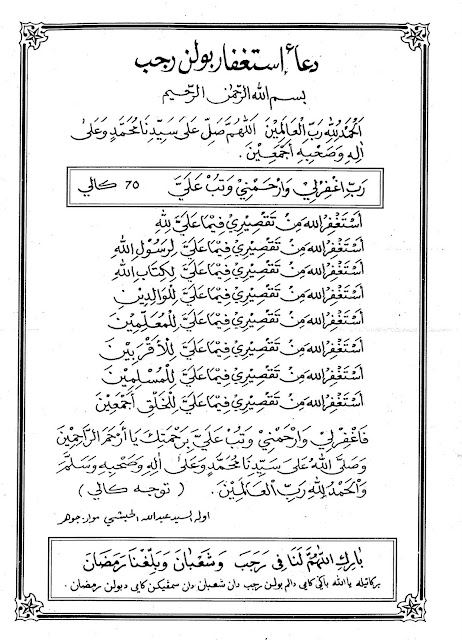 دعاء إستغفار بولن رجب
بسم الله الرّحمٰن الرّحيم
اَلْحَمْدُ لِلّٰهِ رَبِّ الْعَالَمِيْنَ اَللّٰهُمَّ صَلِّ عَلَى سَيِّدِنَا مُحَمَّدٍ وَعَلَى
اٰلِهِ وَصَحْبِهِ أَجْمَعِيْنَ .
رَبِّ اغْفِرْلِيْ وَارْحَمْنِيْ وَتُبْ عَلَيَّ ٧٥ كالي
اَسْتَغْفِرُ اللهَ مِنْ تَقْصِيْرِيْ فِيْمَا عَلَيَّ لِلّٰهِ
اَسْتَغْفِرُ اللهَ مِنْ تَقْصِيْرِيْ فِيْمَا عَلَيَّ لِرَسُوْلِ اللهِ
اَسْتَغْفِرُ اللهَ مِنْ تَقْصِيْرِيْ فِيْمَا عَلَيَّ لِكِتَابِ اللهِ
اَسْتَغْفِرُ اللهَ مِنْ تَقْصِيْرِيْ فِيْمَا عَلَيَّ لِلْوَالِدِيْنِ
اَسْتَغْفِرُ اللهَ مِنْ تَقْصِيْرِيْ فِيْمَا عَلَيَّ لِلْمُعَلِّمِيْنَ
اَسْتَغْفِرُ اللهَ مِنْ تَقْصِيْرِيْ فِيْمَا عَلَيَّ لِلْأَقْرَبِيْنَ
اَسْتَغْفِرُ اللهَ مِنْ تَقْصِيْرِيْ فِيْمَا عَلَيَّ لِلْمُسْلِمِيْنَ
اَسْتَغْفِرُ اللهَ مِنْ تَقْصِيْرِيْ فِيْمَا عَلَيَّ لِلْخَلْقِ أَجْمَعِيْنَ
فَاغْفِرْ لِيْ وَارْحَمْنِيْ وَتُبْ عَلَيَّ بِرَحْمَتِكَ يَا أَرْحَمَ الرَّاحِمِيْنَ
وَصَلَّى اللهُ عَلَى سَيِّدِنَا مُحَمَّدٍ وَعَلَى اٰلِهِ وَصَحْبِهِ وَسَلَّمَ
وَالْحَمْدُ لِلّٰهِ رَبِّ الْعَالَمِيْنَ . ( توجه كالي )
اوله السيد عبدالله الحبشي موار، جوهر
بَارِكِ اللّٰهُمَّ لَنَا فِى رَجَبَ وَشَعْبَانَ وَبَلِّغْنَا رَمَضَانَ
بركاتيله يا الله باݢي كامي دالم بولن رجب دان شعبان دان سمڤيكن كامي دبولن رمضان .